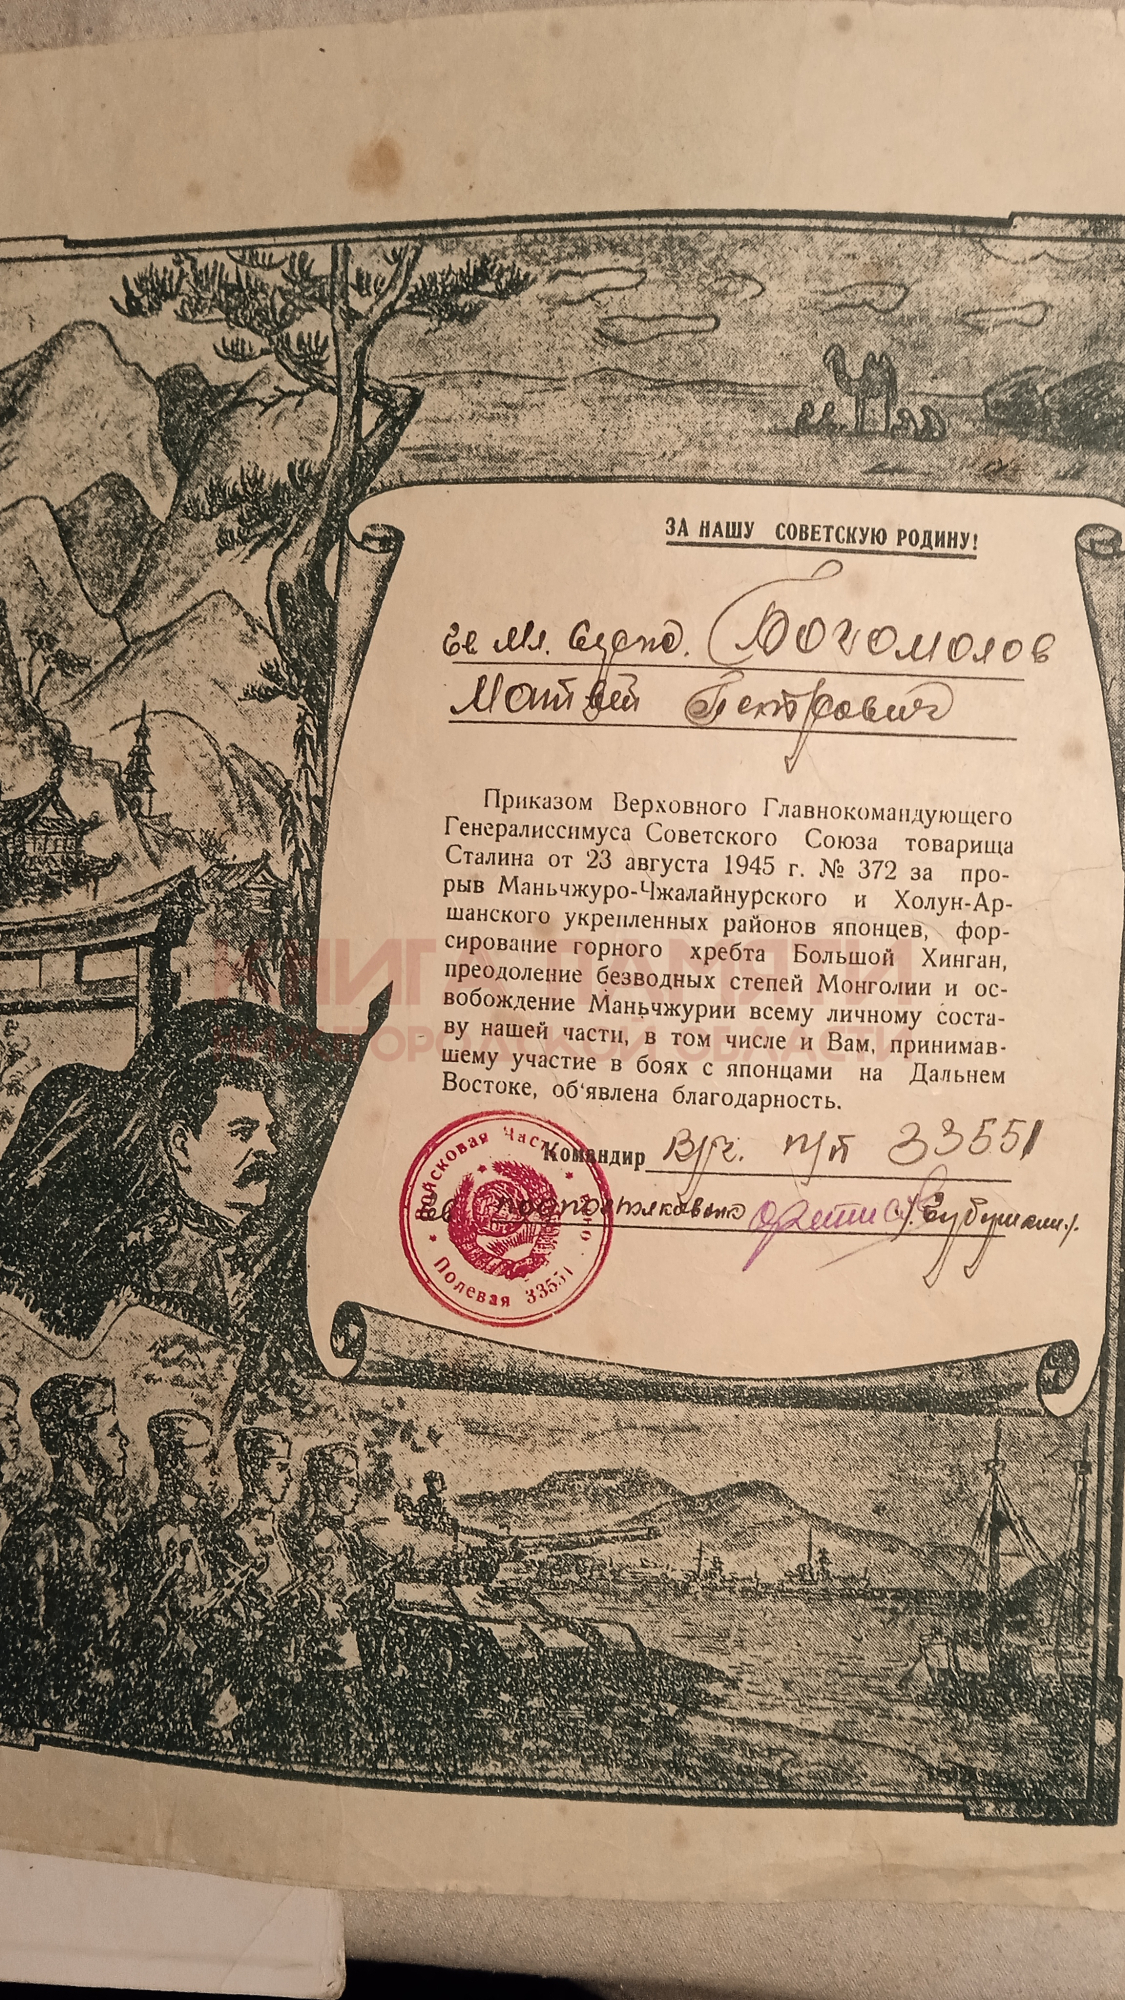 ЗА НАШУ СОВЕТСКУЮ РОДИНУ!
Гв Мл. Сержд. Богомолов
Матвей Пектрович
Приказом Верховного Главнокомандующего
Генералиссимуса Советского Союза товарища
Сталина от 23 августа 1945 г. № 372 за про-
рыв Маньчжуро-Чжалайнурского и Холун-Ар-
шанского укрепленных районов японцев, фор-
сирование горного хребта Большой Хинган,
преодоление безводных степей Монголии и ос-
вобождение Маньчжурии всему личному соста-
ву нашей части, в том числе и Вам, принимав-
шему участие в боях с японцами на Дальнем
Востоке, об‘явлена благодарность.
Командир В/ч. п/п 33551
гв подполковник
Войсковая Часть
Полевая Почта 33551
КНИГА ПАМЯТИ
НИЖЕГОРОДСКОЙ ОБЛАСТИ